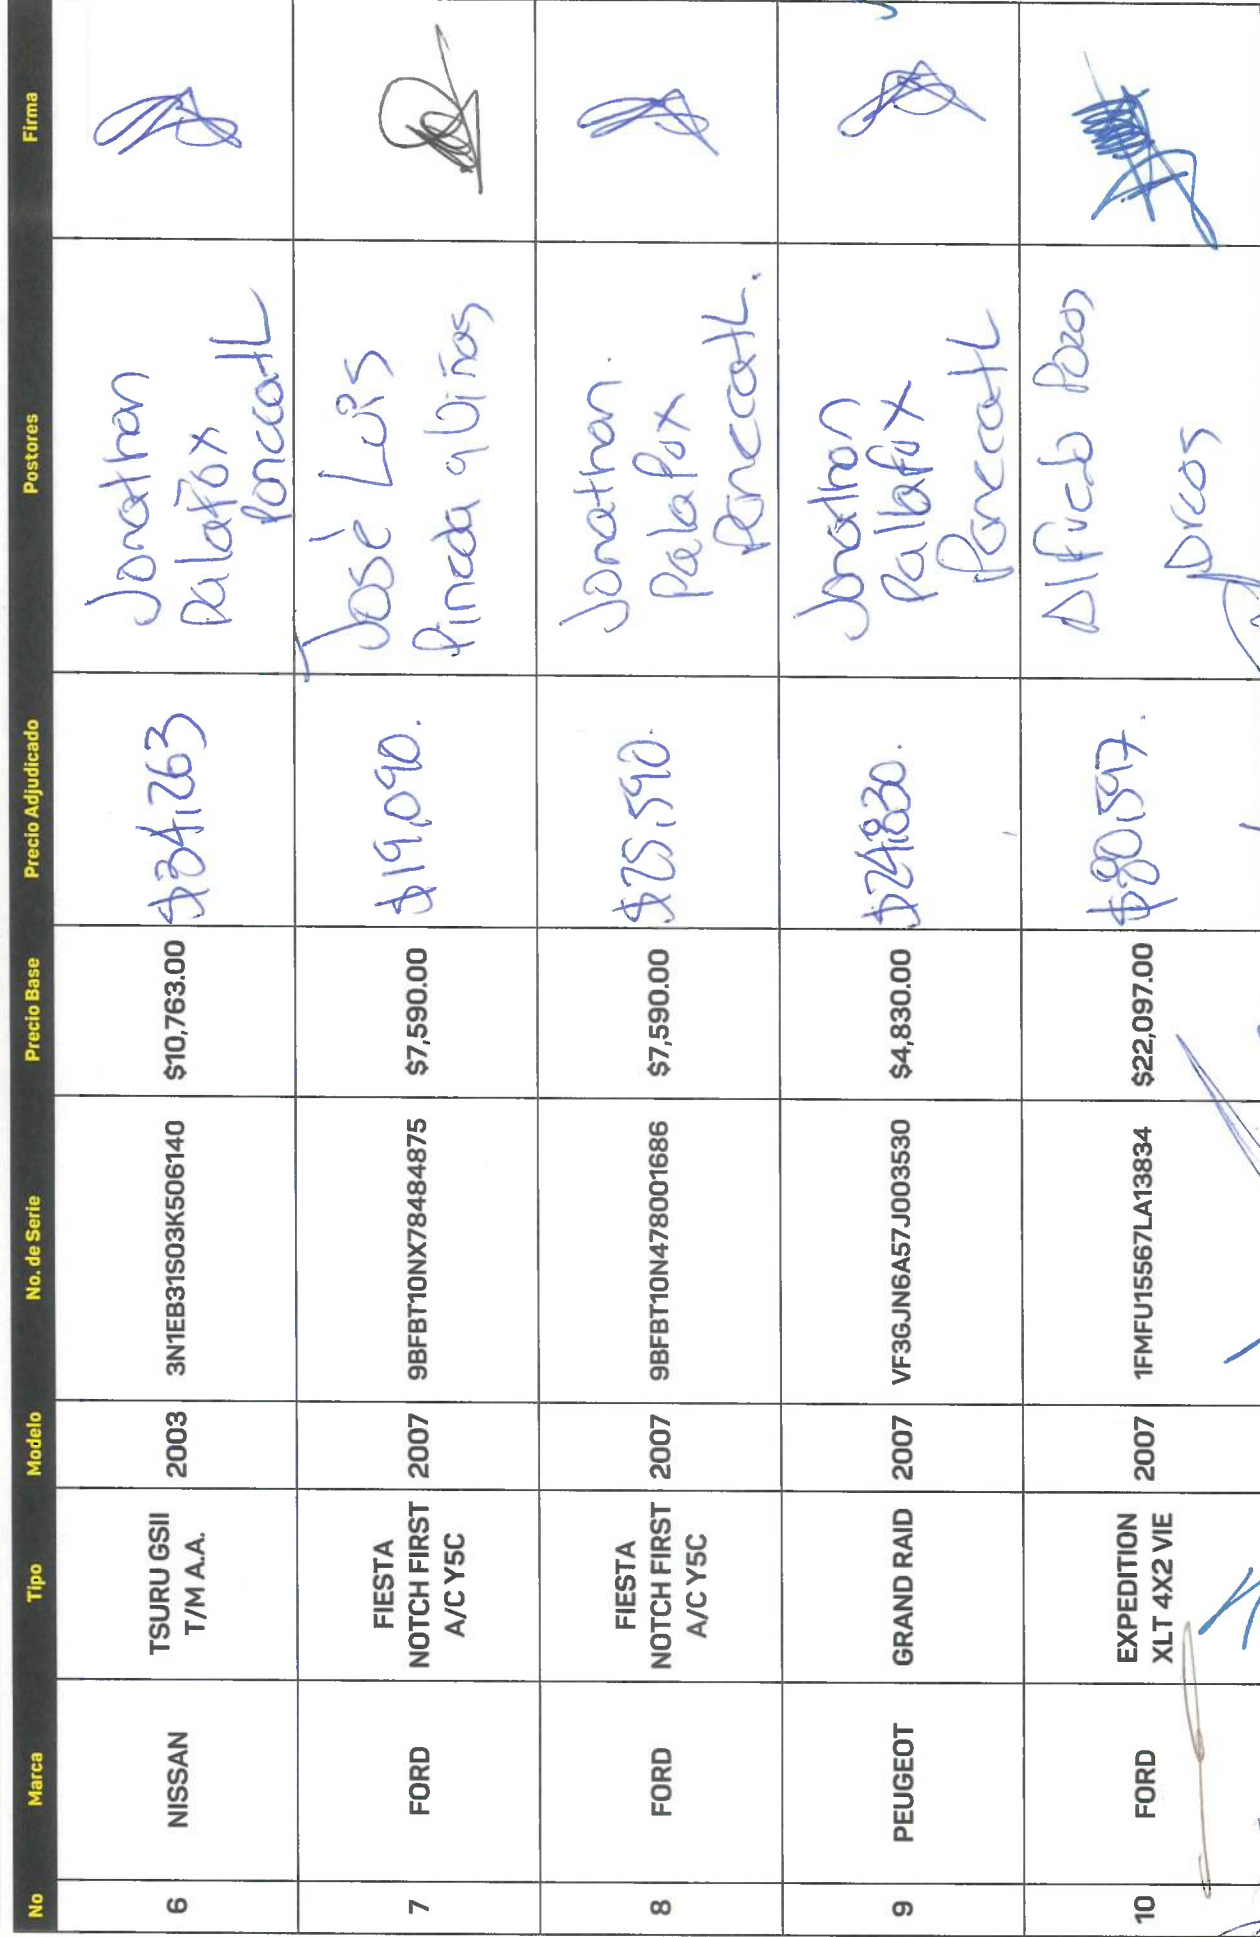 No Marca Tipo Modelo No. de Serie Precio Base Precio Adjudicado Postores Firma
6 NISSAN TSURU GSII T/M A.A. 2003 3N1EB31S03K506140 $10,763.00 $34,263 Jonathan Palafox Poncoatl
7 FORD FIESTA NOTCH FIRST A/C Y5C 2007 9BFBT10NX78484875 $7,590.00 $19,090. José Luis Pineda
8 FORD FIESTA NOTCH FIRST A/C Y5C 2007 9BFBT10N478001686 $7,590.00 $25,590. Jonathan. Palafox
9 PEUGEOT GRAND RAID 2007 VF3GJN6A57J003530 $4,830.00 $24,830. Jonathan Pallafox
10 FORD EXPEDITION XLT 4X2 VIE 2007 1FMFU15567LA13834 $22,097.00 $80,597. Alfredo Pozos